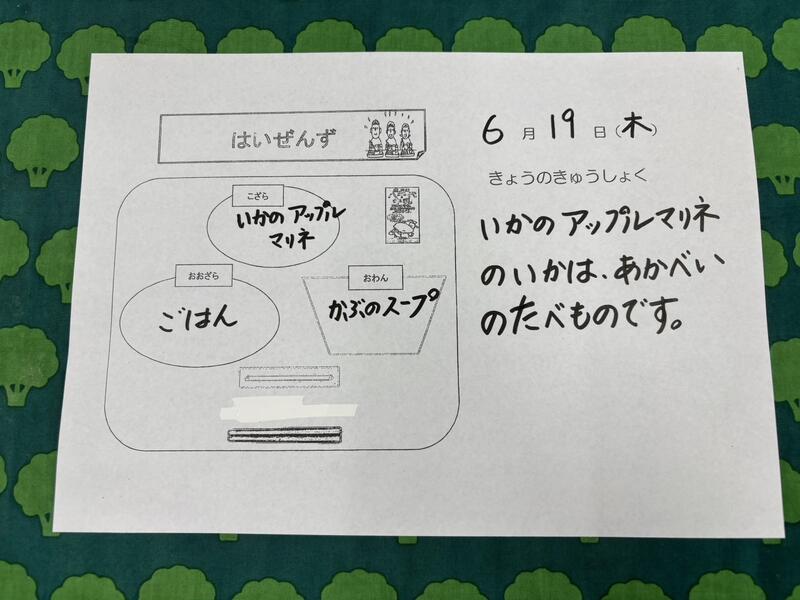 はいぜんず
こざら
いかの アップル
マリネ
おおざら
ごはん
おわん
かぶのスープ
6月19日(木)
きょうのきゅうしょく
いかの アップルマリネ
のいかは、あかべい
のたべものです。